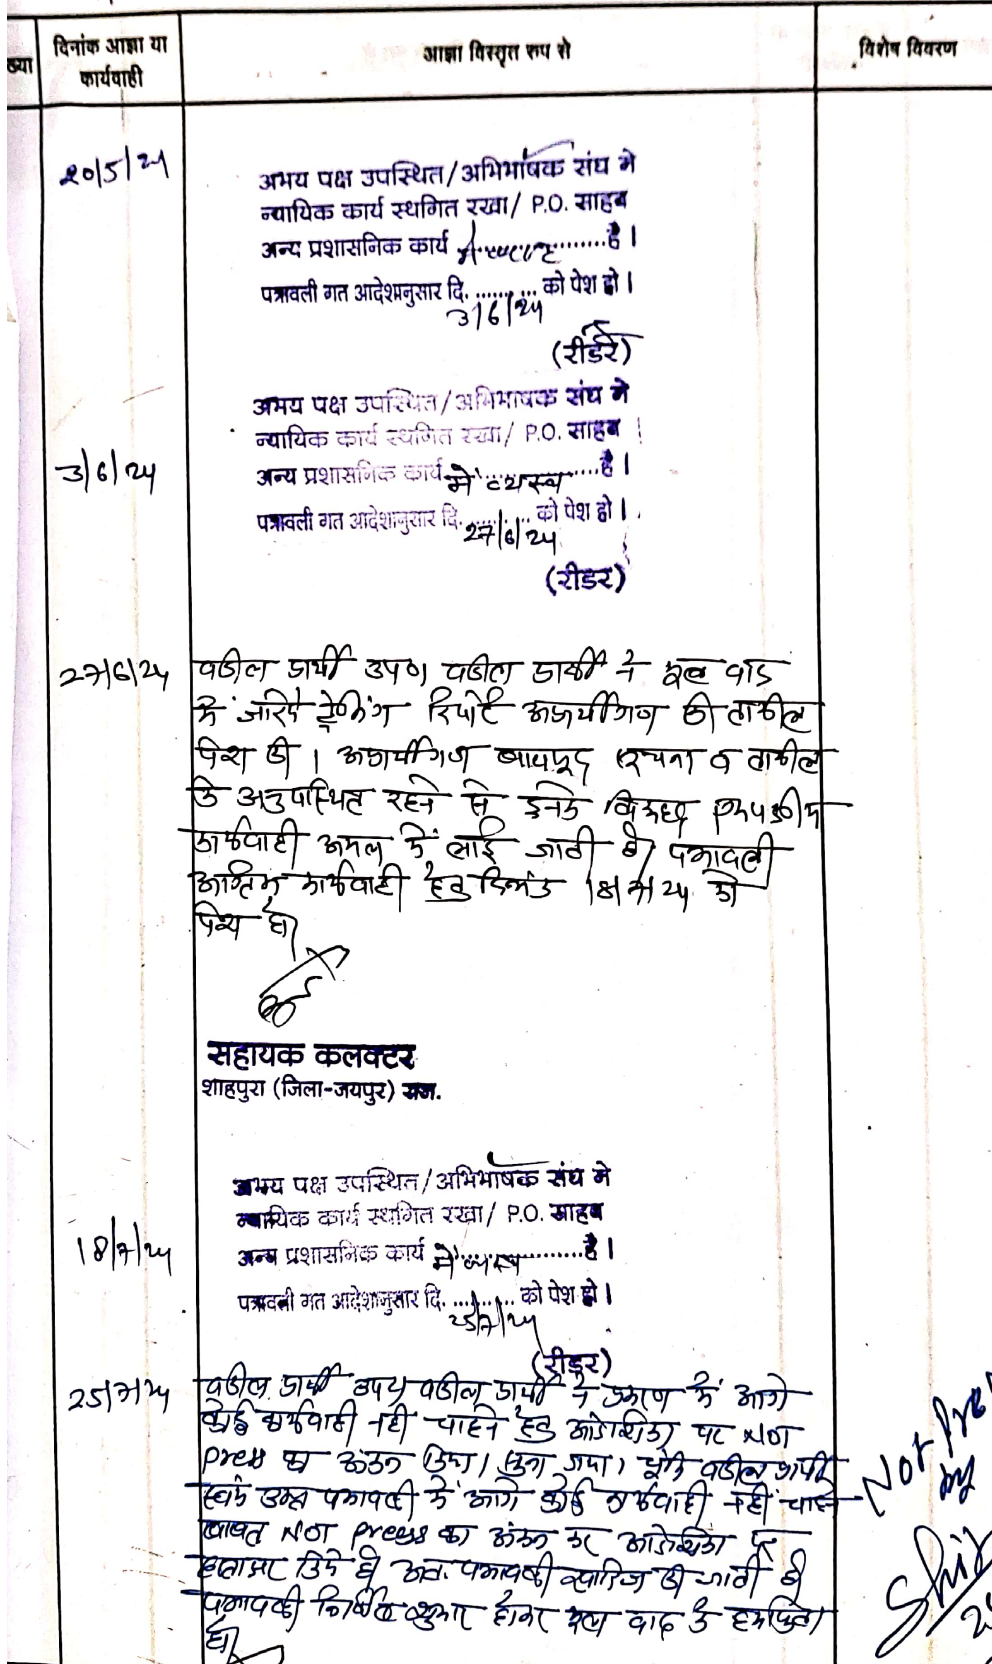 ख्या
दिनांक आज्ञा या
कार्यवाही
आज्ञा विस्तृत रूप से
विशेष विवरण
20/5/24
अभय पक्ष उपस्थित/अभिभाषक संघ मे
न्यायिक कार्य स्थगित रखा/ P.O. साहब
अन्य प्रशासनिक कार्य ............है।
पत्रावली गत आदेशानुसार दि. .......... को पेश हो।
3/6/24
(रीडर)
3/6/24
अभय पक्ष उपस्थित/अभिभाषक संघ मे
न्यायिक कार्य स्थगित रखा/ P.O. साहब
अन्य प्रशासनिक कार्य में व्यस्त ......है।
पत्रावली गत आदेशानुसार दि. .......... को पेश हो।
27/6/24
(रीडर)
27/6/24
वकील प्रार्थी उप0। वकील प्रार्थी ने मूल वाद
में जरिये ट्रेकिंग रिपोर्ट अप्रार्थीगण की तामील
पेश की। अप्रार्थीगण बावजूद सूचना व तामील
के अनुपस्थित रहने से इनके विरूद्ध एकपक्षीय
कार्यवाही अमल में लाई जाती है। पत्रावली
अग्रिम कार्यवाही हेतु दिनांक 18/7/24 को
पेश हो।
सहायक कलक्टर
शाहपुरा (जिला-जयपुर) राज.
18/7/24
अभय पक्ष उपस्थित/अभिभाषक संघ मे
न्यायिक कार्य स्थगित रखा/ P.O. साहब
अन्य प्रशासनिक कार्य में व्यस्त ............है।
पत्रावली गत आदेशानुसार दि. .......... को पेश हो।
25/7/24
(रीडर)
25/7/24
वकील प्रार्थी उप0। वकील प्रार्थी ने प्रकरण में आगे
कोई कार्यवाही नही चाहने हेतु आदेशिका पर NOT
Press का अंकन किया। सुना गया। चूंकि वकील प्रार्थी
स्वयं उक्त पत्रावली में आगे कोई कार्यवाही नहीं चाहने
बाबत NOT press का अंकन कर आदेशिका पर
हस्ताक्षर किये है। अत: पत्रावली खारिज की जाती है।
पत्रावली निर्णित शुमार होकर मूल वाद के हमफिता
हो।
Not Pre
by